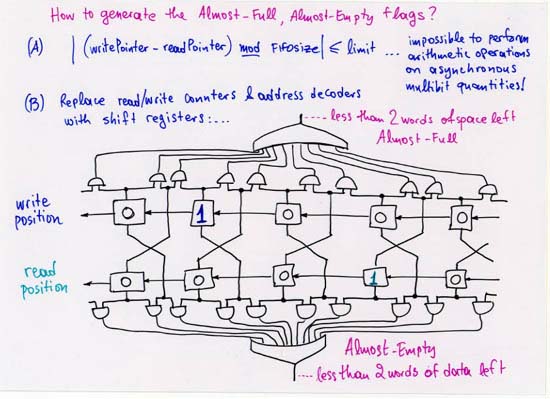 How to generate the Almost-Full, Almost-Empty flags?
(A) | (writePointer - readPointer) mod FifoSize | ≤ limit ... impossible to perform
arithmetic operations
on asynchronous
multibit quantities!
(B) Replace read/write counters & address decoders
with shift registers:...
less than 2 words of space left
Almost-Full
write
position
0 1 0 0 0
read
position
0 0 0 1 0
Almost-Empty
less than 2 words of data left